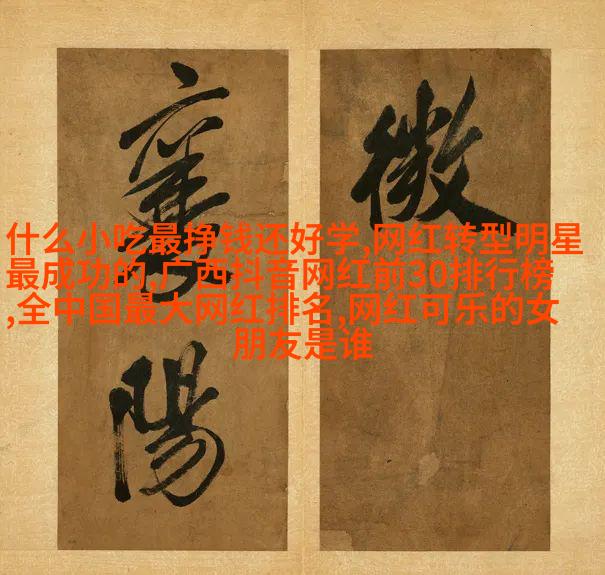 微
襄陽
什么小吃最挣钱还好学,网红转型明星
最成功的,广西抖音网红前30排行榜
,全中国最大网红排名,网红可乐的女
朋友是谁